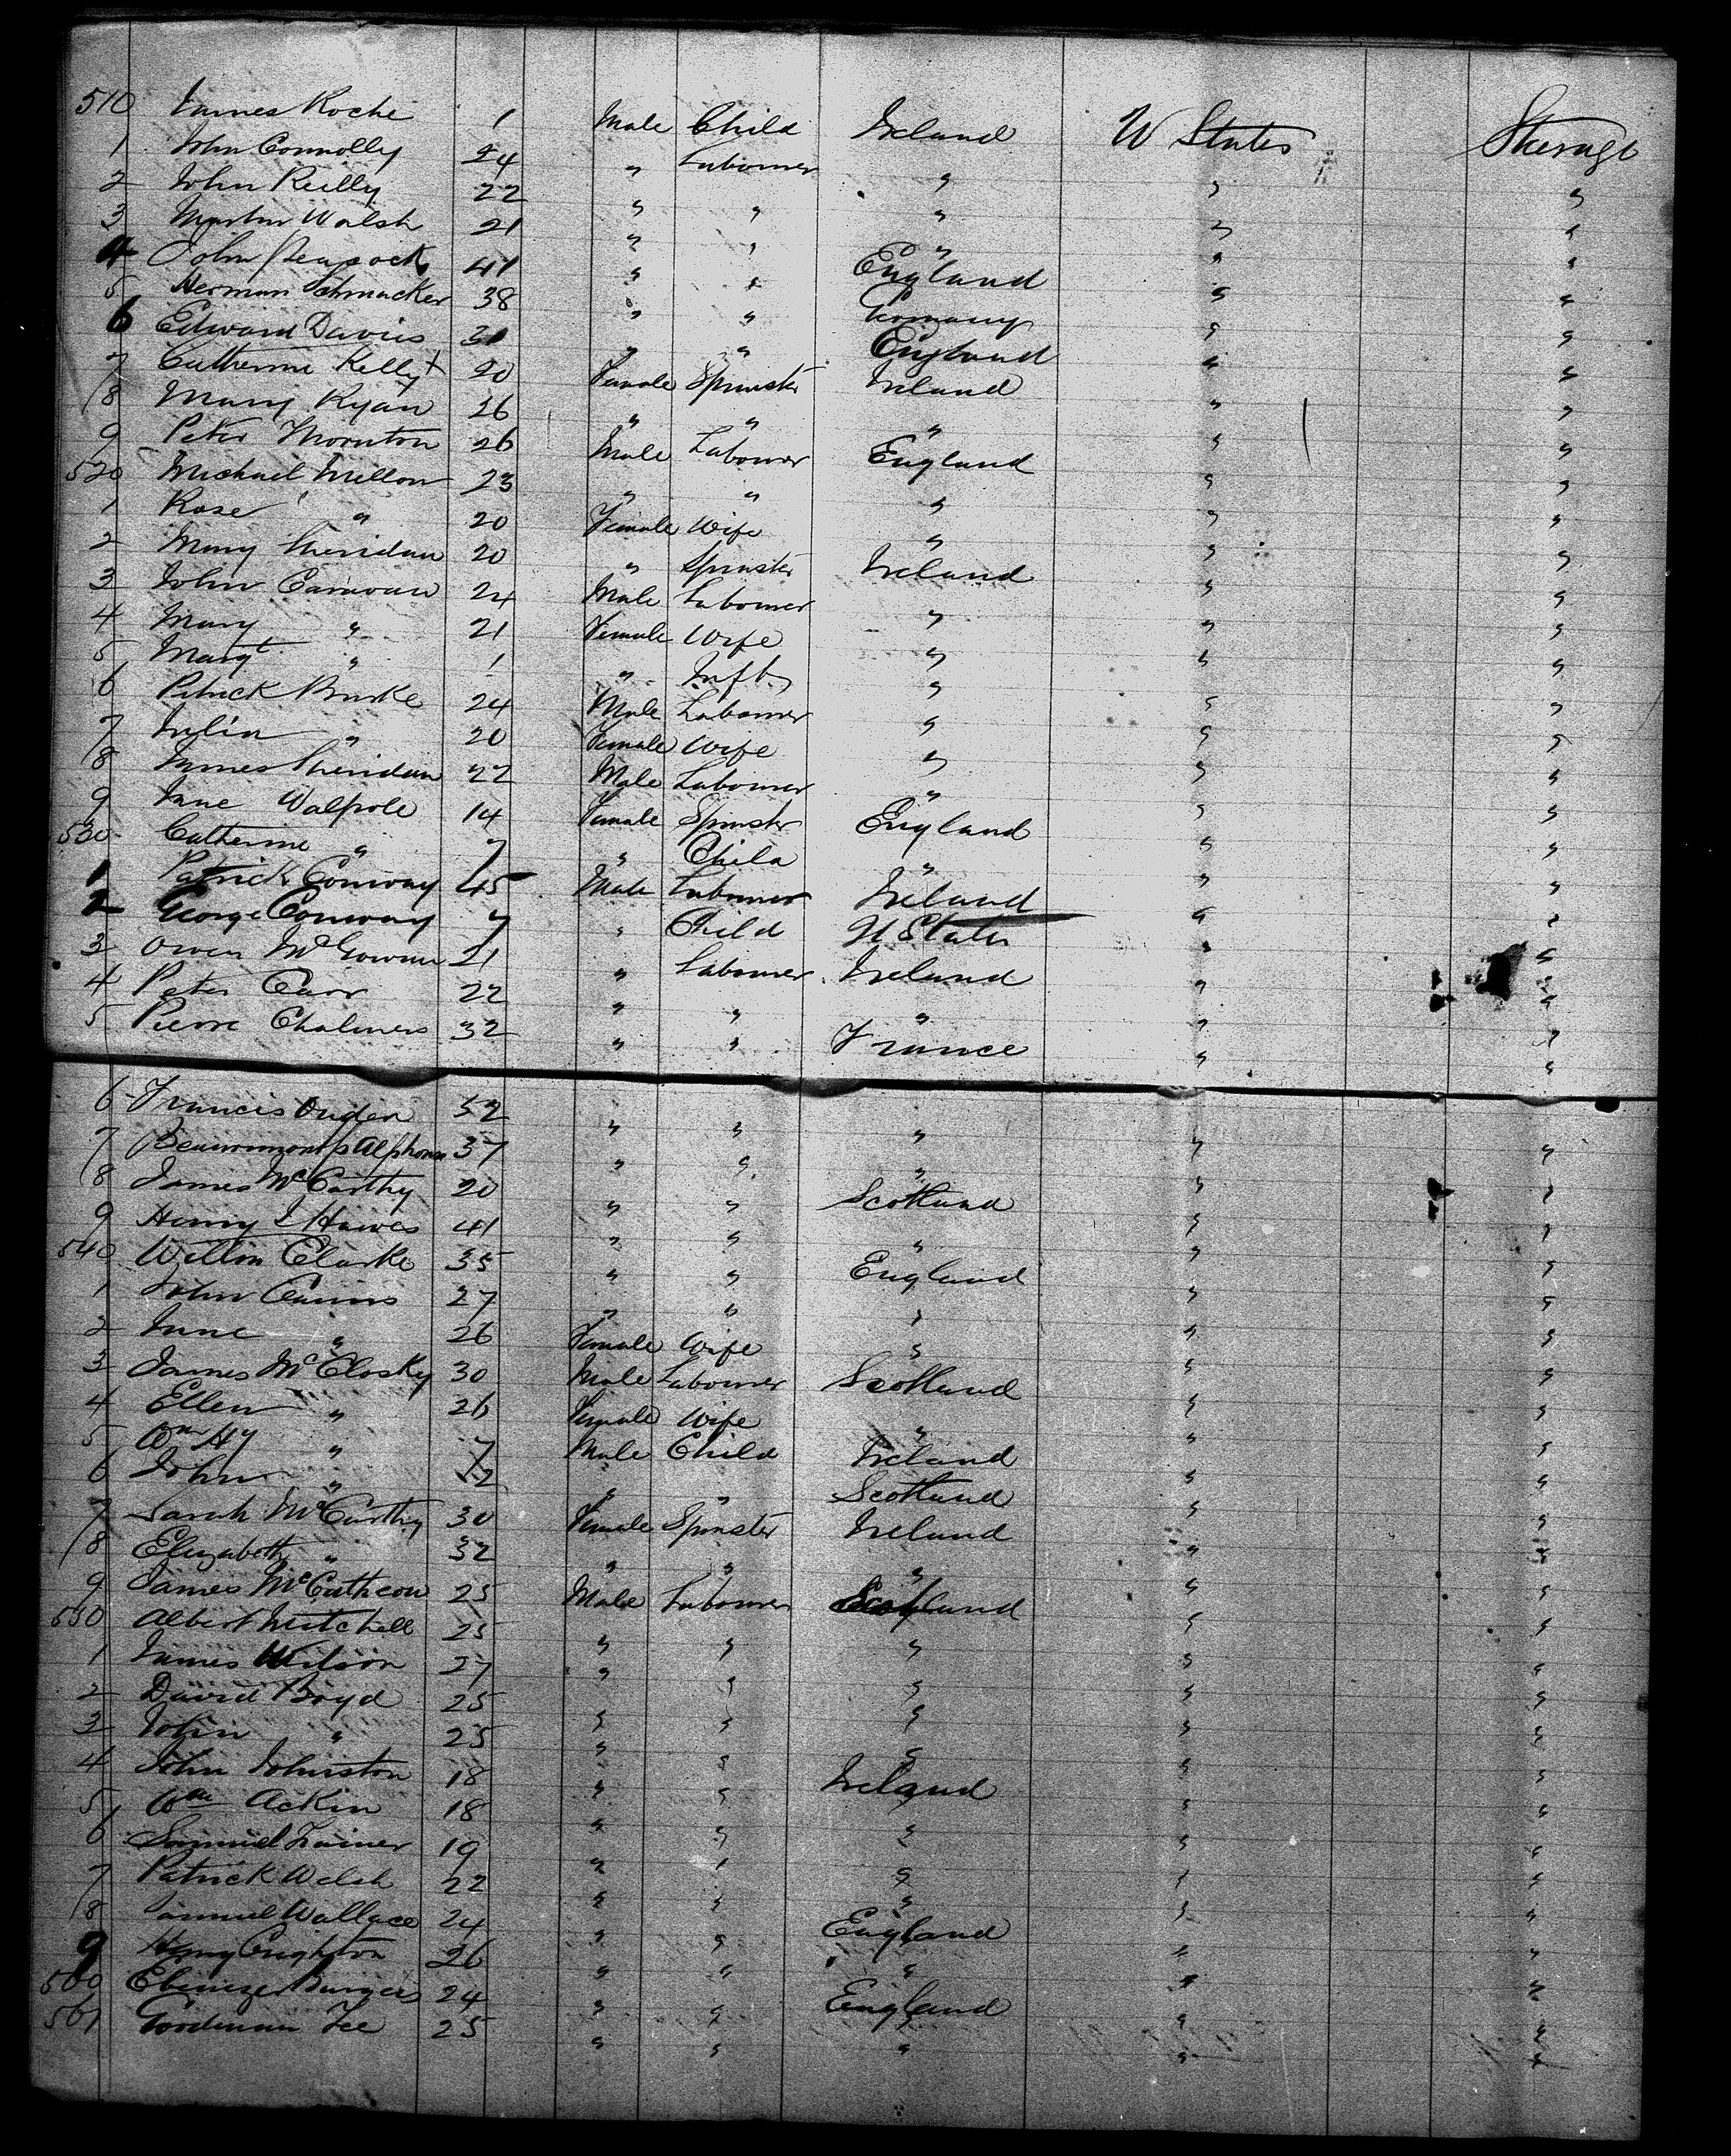 510 James Roche 1 Male Child Ireland U States Steerage
1 John Connolly 24 " Labourer " " "
2 John Reilly 22 " " " " "
3 Martin Walsh 21 " " " " "
4 John Peacock 41 " " England " "
5 Herman Schmacker 38 " " Germany " "
6 Edward Davies " " England " "
7 Catherine Kelly + 20 Female Spinster Ireland " "
8 Mary Ryan 26 " " " " "
9 Peter Thornton 26 Male Labourer England " "
520 Michael Mellon 23 " " " " "
1 Rose " 20 Female Wife " " "
2 Mary Sheridan 20 " Spinster Ireland " "
3 John Canavan 24 Male Labourer " " "
4 Mary " 21 Female Wife " " "
5 Margt " 1 " Inft " " "
6 Patrick Burke 24 Male Labourer " " "
7 " 20 Female Wife " " "
8 James Sheridan 22 Male Labourer " " "
9 Jane Walpole 14 Female Spinster England " "
530 Catherine " 7 " Child " " "
1 Patrick Conway 45 Male Labourer Ireland " "
2 George Conway 7 " Child U States " "
3 Owen McGowan 21 " Labourer Ireland " "
4 Peter Carr 22 " " " " "
5 Pierre Chalmers 32 " " France " "
6 Francis 52 " " " " "
7 Alphonse 37 " " " " "
8 James McCarthy 20 " " Scotland " "
9 Henry Hawes 41 " " " " "
540 Willm Clarke 35 " " England " "
1 John Cairns 27 " " " " "
2 Jane " 26 Female Wife " " "
3 James McClosky 30 Male Labourer Scotland " "
4 Ellen " 26 Female Wife " " "
5 Wm Hy " 7 Male Child Ireland " "
6 John " " " Scotland " "
7 Sarah McCarthy 30 Female Spinster Ireland " "
8 Elizabeth " 32 " " " " "
9 James McCutheon 25 Male Labourer Scotland " "
550 Albert Mitchell 25 " " " " "
1 James Wilson 27 " " " " "
2 David Boyd 25 " " " " "
3 John " 25 " " " " "
4 John Johnston 18 " " Ireland " "
5 Wm Ackin 18 " " " " "
6 Samuel Trainer 19 " " " " "
7 Patrick Welsh 22 " " " " "
8 Samuel Wallace 24 " " England " "
9 Henry Crighton 26 " " " " "
560 Ebenezer Burgess 24 " " England " "
561 Goodman Lee 25 " " " " "